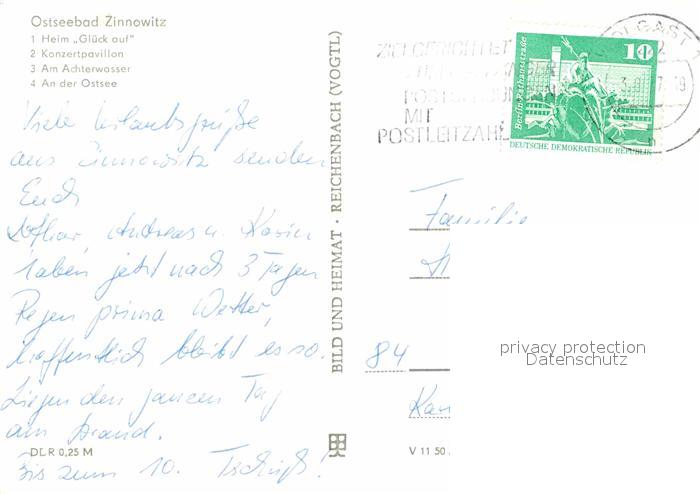 Ostseebad Zinnowitz
1 Heim „Glück auf"
2 Konzertpavillon
3 Am Achterwasser
4 An der Ostsee
Viele Urlaubsgrüße
aus Zinnowitz senden
Euch
Lothar, Andreas u. Karin
haben jetzt nach 3 Tagen
Regen prima Wetter,
hoffentlich bleibt es so.
Liegen den ganzen Tag
am Strand.
Bis zum 10. Tschüß!
DDR 0,25 M
BILD UND HEIMAT · REICHENBACH (VOGTL)
V 11 50
ZIELGERICHTET
POSTSENDUNGEN
MIT
POSTLEITZAHL
WOLGAST 1
10
Berlin, Rathausstraße
DEUTSCHE DEMOKRATISCHE REPUBLIK
Familie
84
privacy protection
Datenschutz